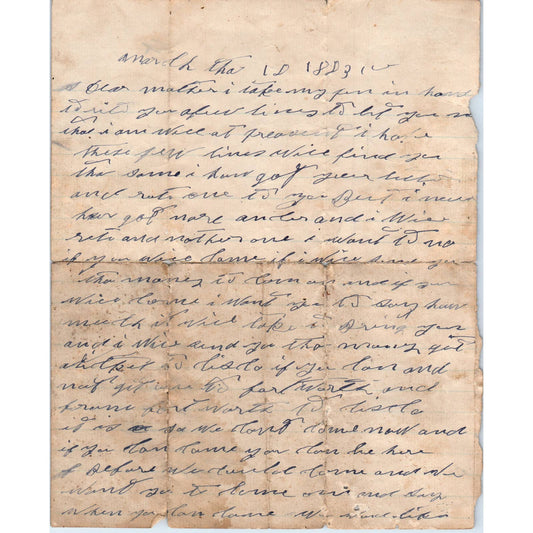 march tha 18 1883
Dear mother i take my pen in hand
to rite you a few lines to let you no
that i am well at preasent i hope
these few lines will find you
tha same i haw got your letter
and rote one to you But i never
haw got nare anser and i will
rite and nother one i want to no
if you will come if i will send you
tha money to com on and if you
will come i want you to say how
mutch it will take to Bring you
and i will send you tha money get
ticket to cisco if you can and
not get one to fort worth and
from fort worth to cisco
it is so we cant come now and
if you can come you can be here
Before we could come and we
want you to come on and say
when you can come we would like